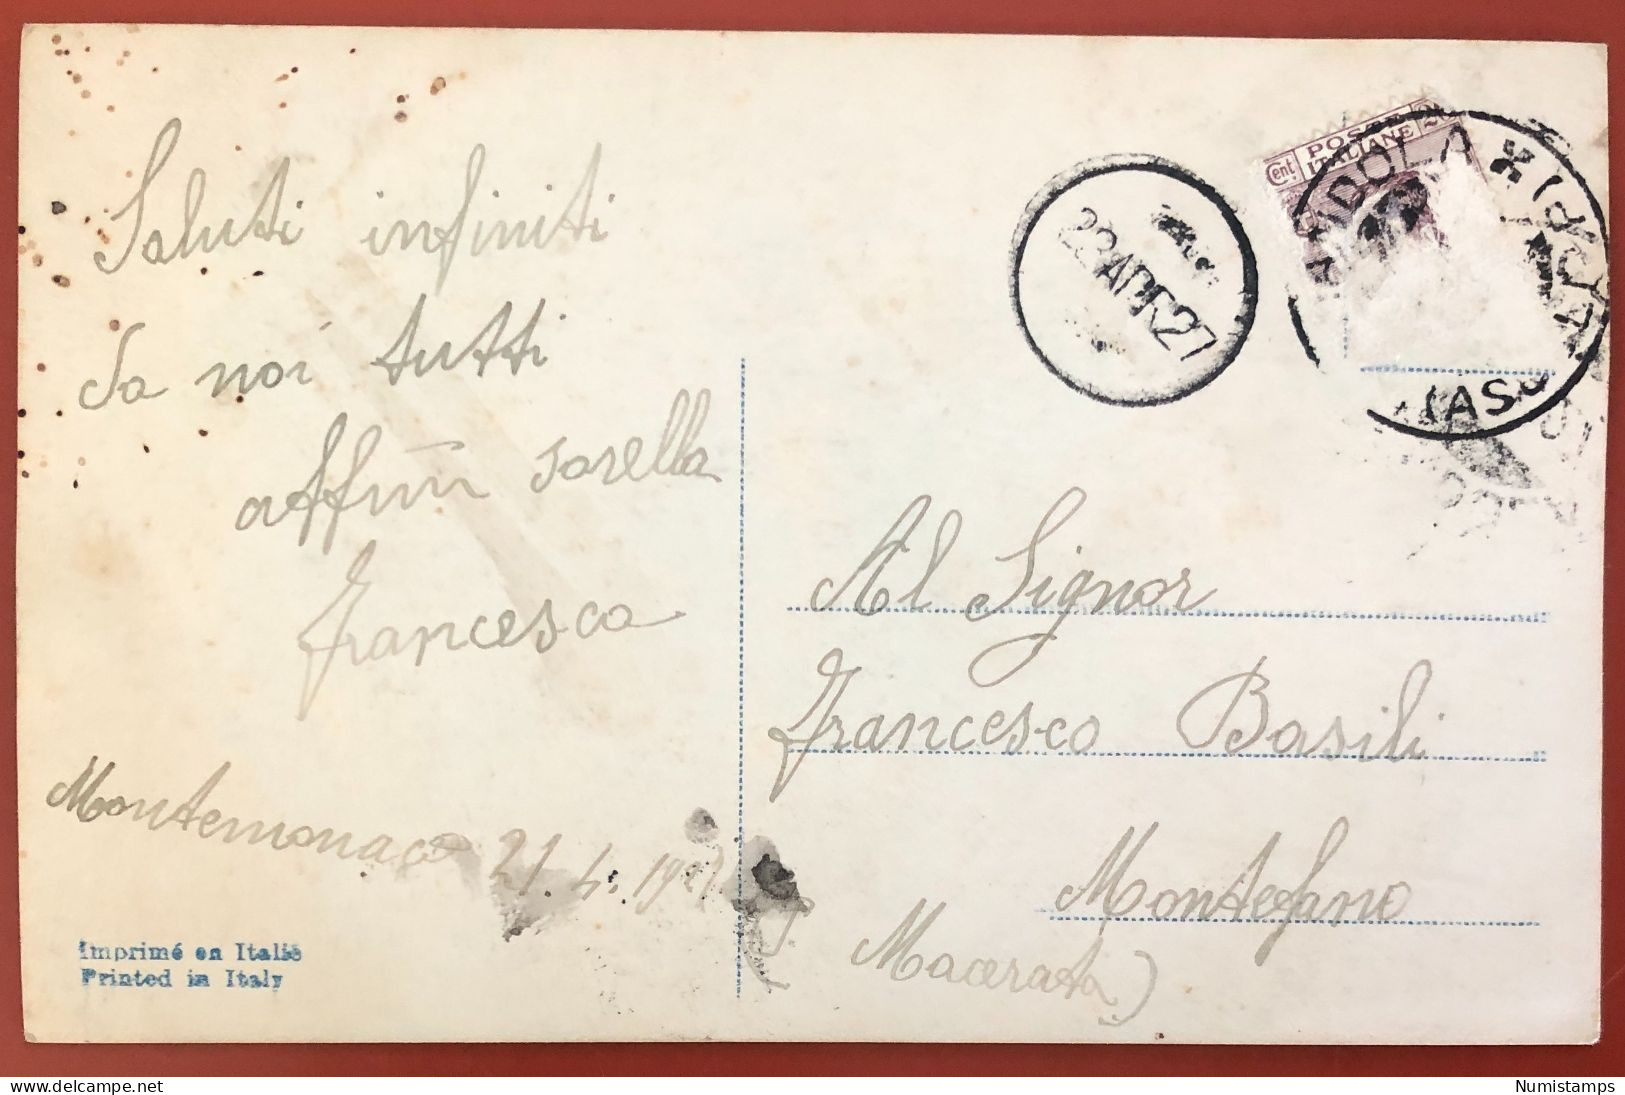 Saluti infiniti
da noi tutti
affma sorella
Francesca
Montemonaco 21.4.1927
Imprimé en Italie
Printed in Italy
22 APR 27
Cent POSTE ITALIANE 20
Al Signor
Francesco Basili
Montefano
Macerata)